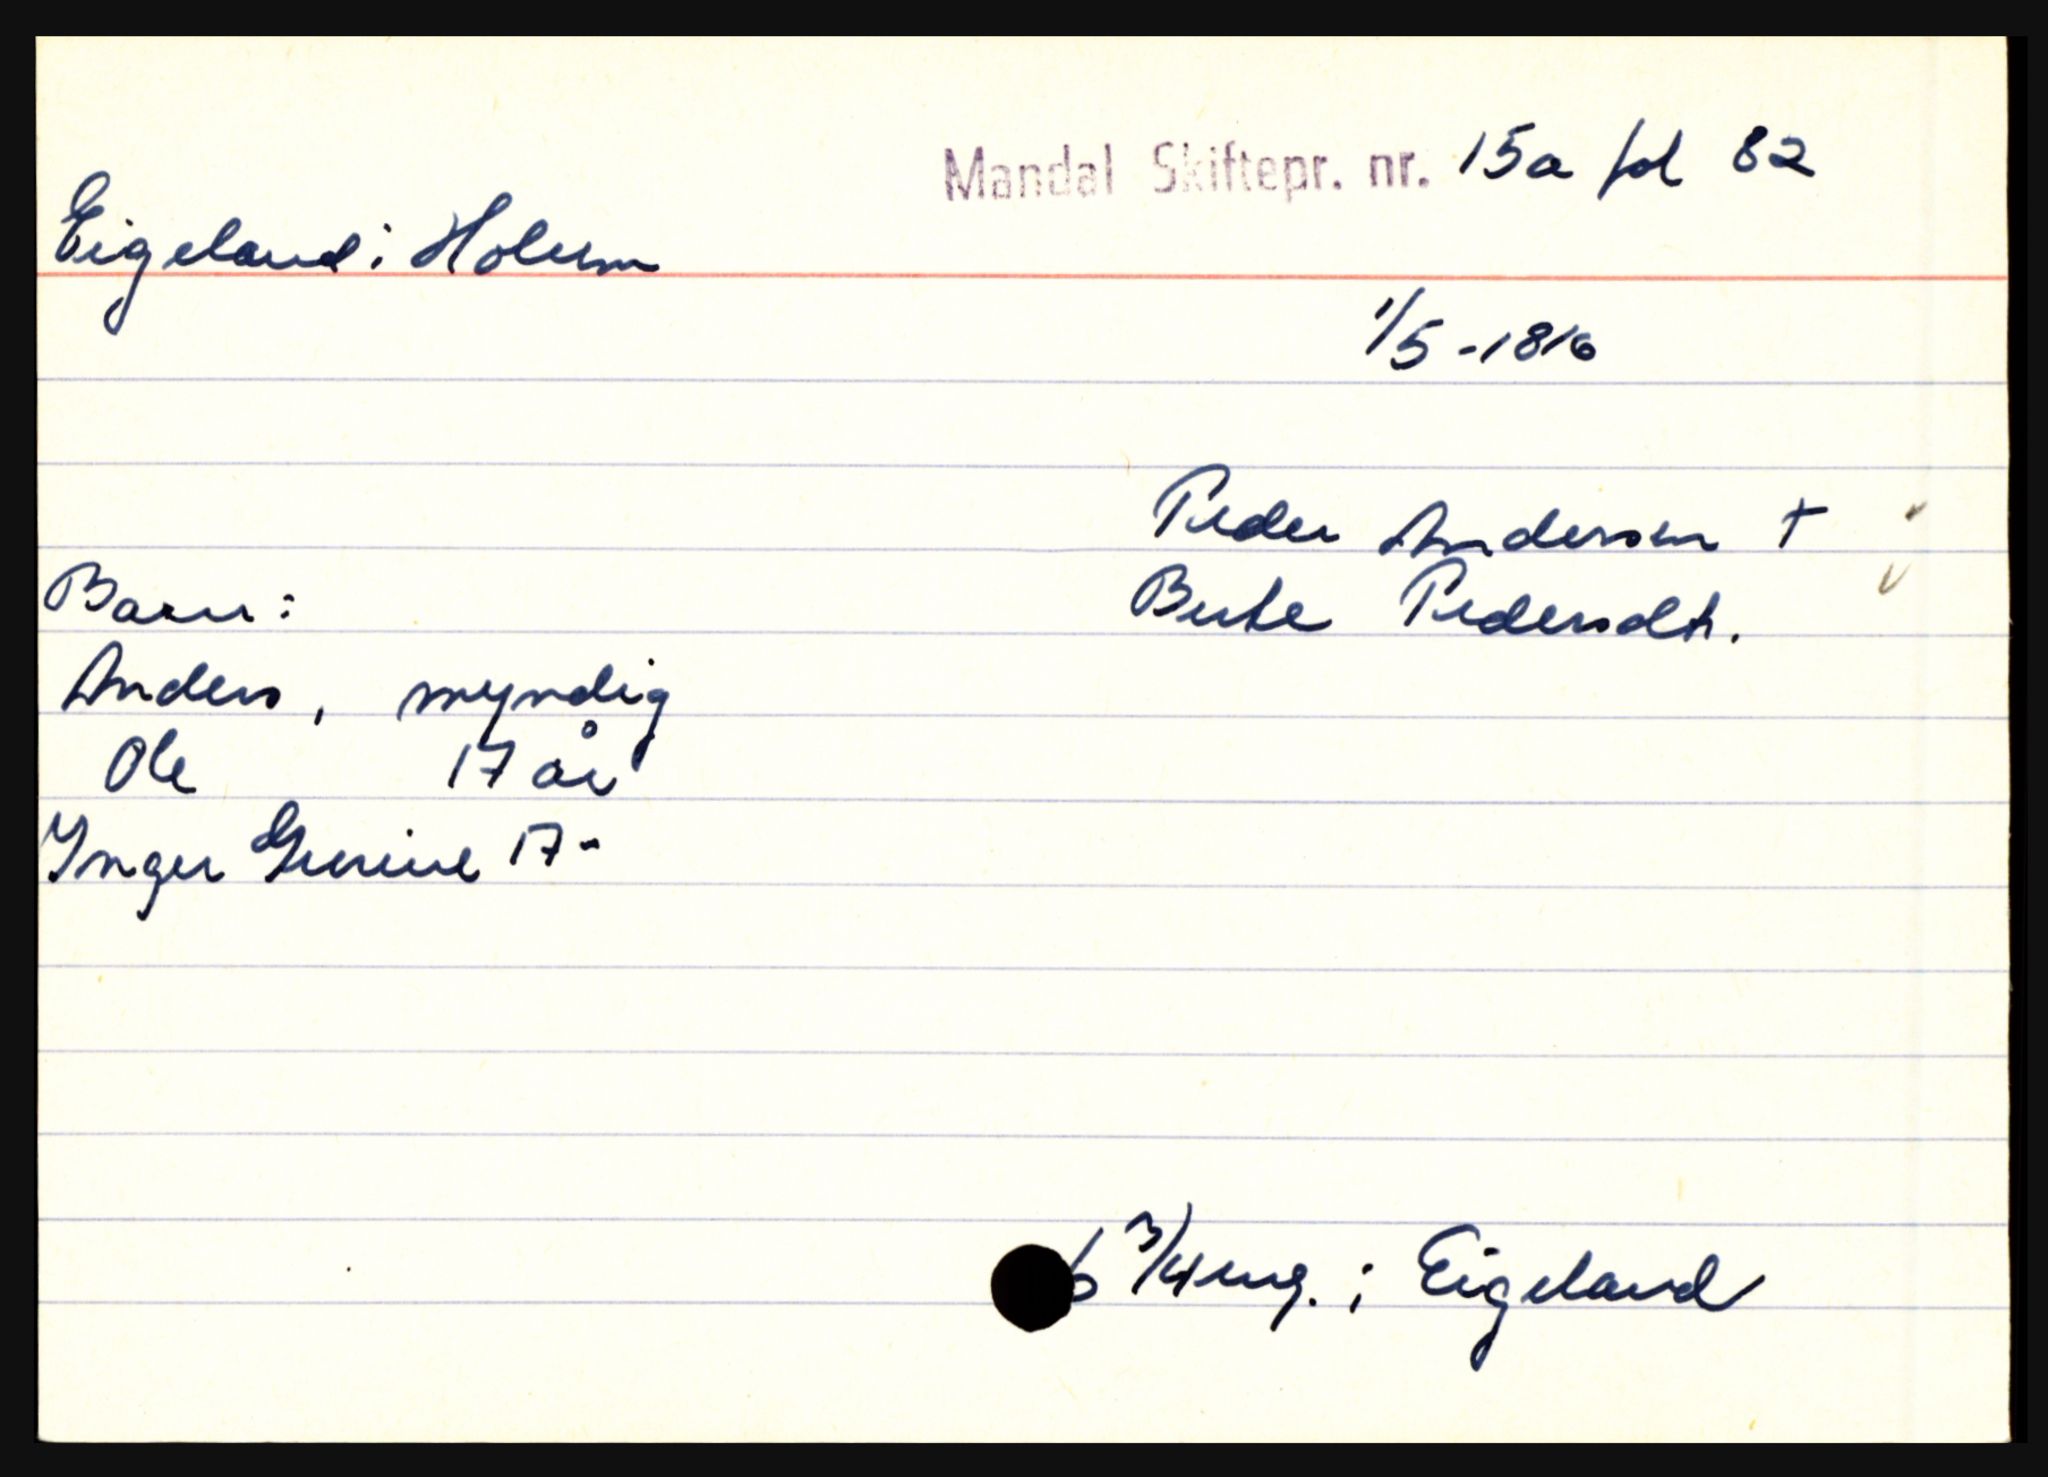 Mandal Skiftepr. nr. 15a fol 82
Eigeland i Holum
1/5 - 1816
Peder Andersen +
Barn: Berte Pedersdtr.
Anders, myndig
Ole 17 år
Inger Gurine 17 -
6 3/4 mg. i Eigeland